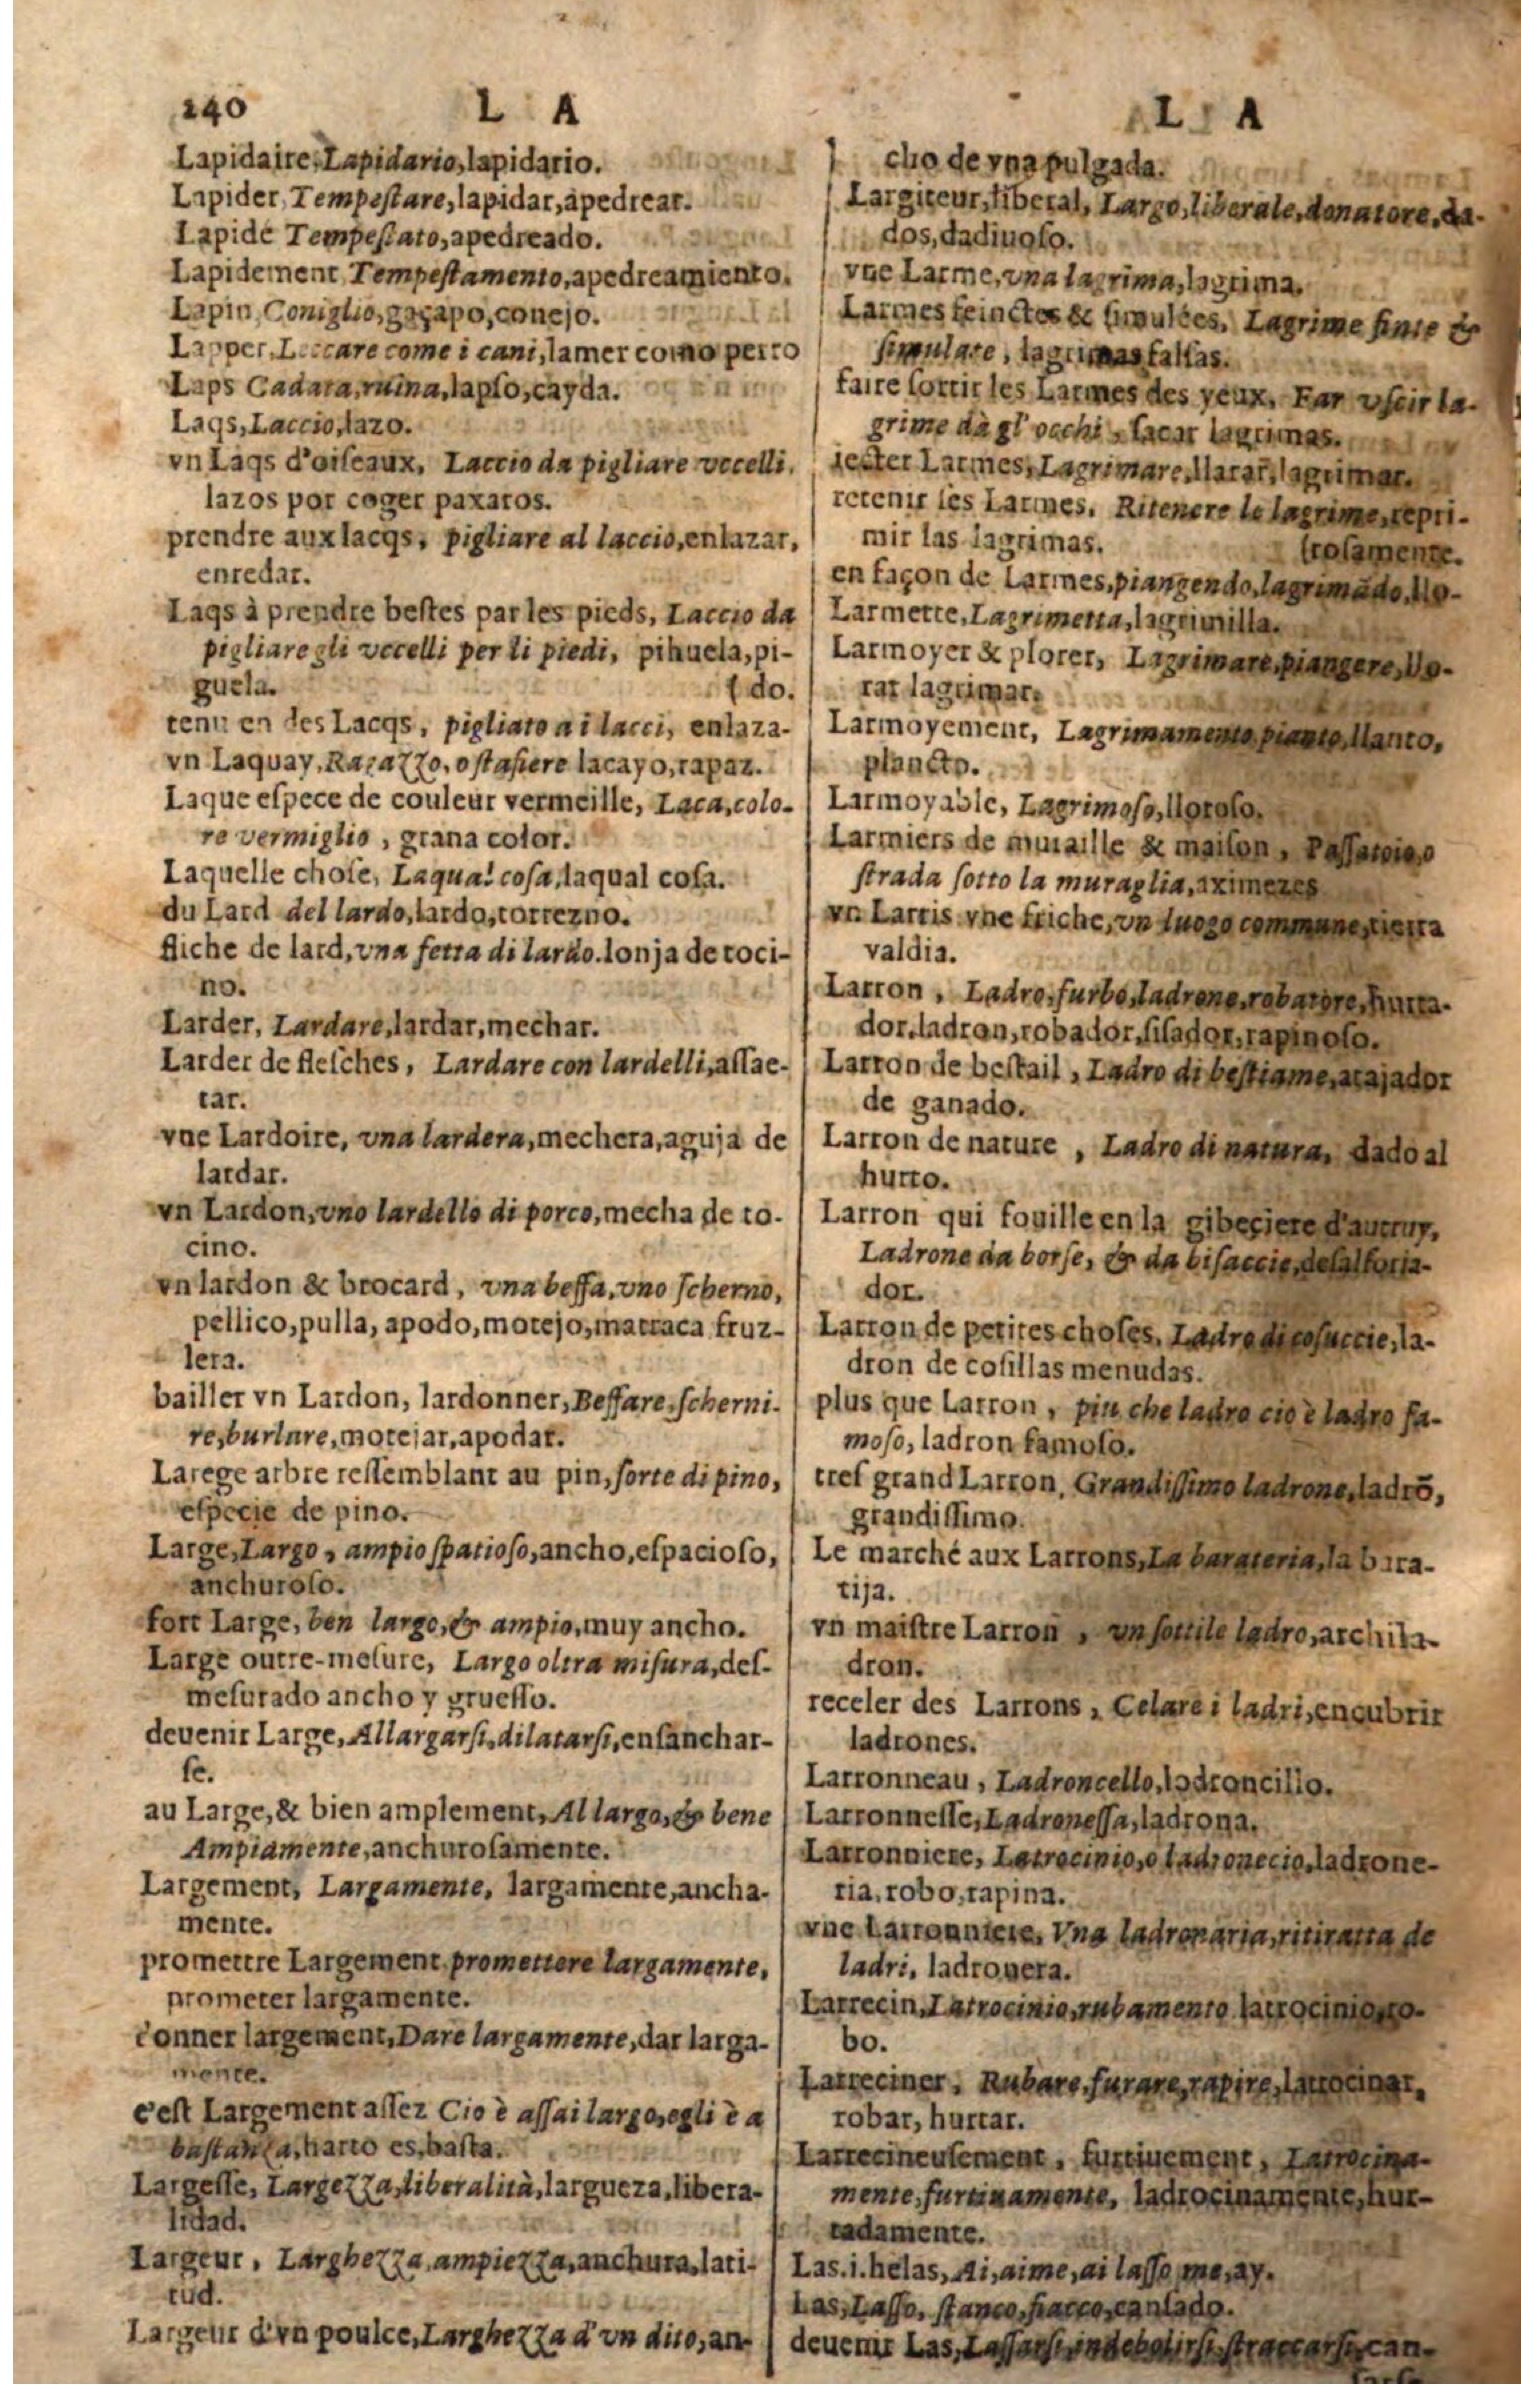 240 L A
Lapidaire, Lapidario, lapidario.
Lapider, Tempeſtare, lapidar, apedrear.
Lapidé Tempeſtato, apedreado.
Lapidement Tempeſtamento, apedreamiento.
Lapin, Coniglio, gaçapo, conejo.
Lapper, Leccare come i cani, lamer como perro
Laps Cadata, ruina, lapſo, cayda.
Laqs, Laccio, lazo.
vn Laqs d'oiſeaux, Laccio da pigliare vccelli,
lazos por coger paxaros.
prendre aux lacqs, pigliare al laccio, enlazar,
enredar.
Laqs à prendre beſtes par les pieds, Laccio da
pigliare gli vccelli per li piedi, pihuela, pi-
guela. ( do.
tenu en des Lacqs, pigliato a i lacci, enlaza-
vn Laquay, Ragazzo, o ſtafiere lacayo, rapaz.
Laque eſpece de couleur vermeille, Laca, colo-
re vermiglio, grana color.
Laquelle choſe, Laqual coſa, laqual coſa.
du Lard del lardo, lardo, torrezno.
fliche de lard, vna fetta di lardo. lonja de toci-
no.
Larder, Lardare, lardar, mechar.
Larder de fleſches, Lardare con lardelli, aſſae-
tar.
vne Lardoire, vna lardera, mechera, aguja de
lardar.
vn Lardon, vno lardello di porco, mecha de to-
cino.
vn lardon & brocard, vna beffa, vno ſcherno,
pellico, pulla, apodo, motejo, matraca fruz-
lera.
bailler vn Lardon, lardonner, Beffare, ſcherni-
re, burlare, motejar, apodar.
Larege arbre reſſemblant au pin, ſorte di pino,
eſpecie de pino.
Large, Largo, ampio ſpatioſo, ancho, eſpacioſo,
anchuroſo.
fort Large, ben largo, & ampio, muy ancho.
Large outre-meſure, Largo oltra miſura, deſ-
meſurado ancho y grueſſo.
deuenir Large, Allargarſi, dilatarſi, enſanchar-
ſe.
au Large, & bien amplement, Al largo, & bene
Ampiamente, anchuroſamente.
Largement, Largamente, largamente, ancha-
mente.
promettre Largement promettere largamente,
prometer largamente.
donner largement, Dare largamente, dar larga-
mente.
c'eſt Largement aſſez Cio è aſſai largo, egli è a
baſtanza, harto es, baſta.
Largeſſe, Largezza, liberalità, largueza, libera-
lidad.
Largeur, Larghezza, ampiezza, anchura, lati-
tud.
Largeur d'vn poulce, Larghezza d'vn dito, an-
L A
cho de vna pulgada.
Largiteur, liberal, Largo, liberale, donatore, da-
dos, dadiuoſo.
vne Larme, vna lagrima, lagrima.
Larmes feinctes & ſimulées, Lagrime finte &
ſimulate, lagrimas falſas.
faire ſortir les Larmes des yeux, Far vſcir la-
grime dà gl' occhi, ſacar lagrimas.
iecter Larmes, Lagrimare, llorar, lagrimar.
retenir ſes Larmes, Ritenere le lagrime, repri-
mir las lagrimas. (roſamente.
en façon de Larmes, piangendo, lagrimādo, llo-
Larmette, Lagrimetta, lagrimilla.
Larmoyer & plorer, Lagrimare, piangere, llo-
rar lagrimar.
Larmoyement, Lagrimamento pianto, llanto,
plancto.
Larmoyable, Lagrimoso, lloroſo.
Larmiers de muraille & maiſon, Paſſatoio, o
ſtrada ſotto la muraglia, aximezes
vn Larris vne friche, vn luogo commune, tierra
valdia.
Larron, Ladro, furbo, ladrone, robatore, hurta-
dor, ladron, robador, ſiſador, rapinoſo.
Larron de beſtail, Ladro di beſtiame, atajador
de ganado.
Larron de nature, Ladro di natura, dado al
hurto.
Larron qui fouille en la gibeçiere d'autruy,
Ladrone da borſe, & da biſaccie, deſalforja-
dor.
Larron de petites choſes, Ladro di coſuccie, la-
dron de coſillas menudas.
plus que Larron, piu che ladro cio è ladro fa-
moſo, ladron famoſo.
tres grand Larron, Grandiſſimo ladrone, ladrō,
grandiſſimo.
Le marché aux Larrons, La barateria, la bara-
tija.
vn maiſtre Larron, vn ſottile ladro, archila-
dron.
receler des Larrons, Celare i ladri, encubrir
ladrones.
Larronneau, Ladroncello, ladroncillo.
Larronneſſe, Ladroneſſa, ladrona.
Larronniere, Latrocinio, o ladronecio, ladrone-
ria, robo, rapina.
vne Larronniere, Vna ladronaria, ritiratta de
ladri, ladronera.
Larrecin, Latrocinio, rubamento latrocinio, ro-
bo.
Larreciner, Rubare, furare, rapire, latrocinar,
robar, hurtar.
Larrecineuſement, furtiuement, Latrocina-
mente, furtiuamente, ladrocinamente, hur-
tadamente.
Las. i. helas, Ai, aime, ai laſſo me, ay.
Las, Laſſo, ſtanco, fiacco, canſado.
deuenir Las, Laſſarſi, indebolirſi, ſtraccarſi, can-
ſarſe